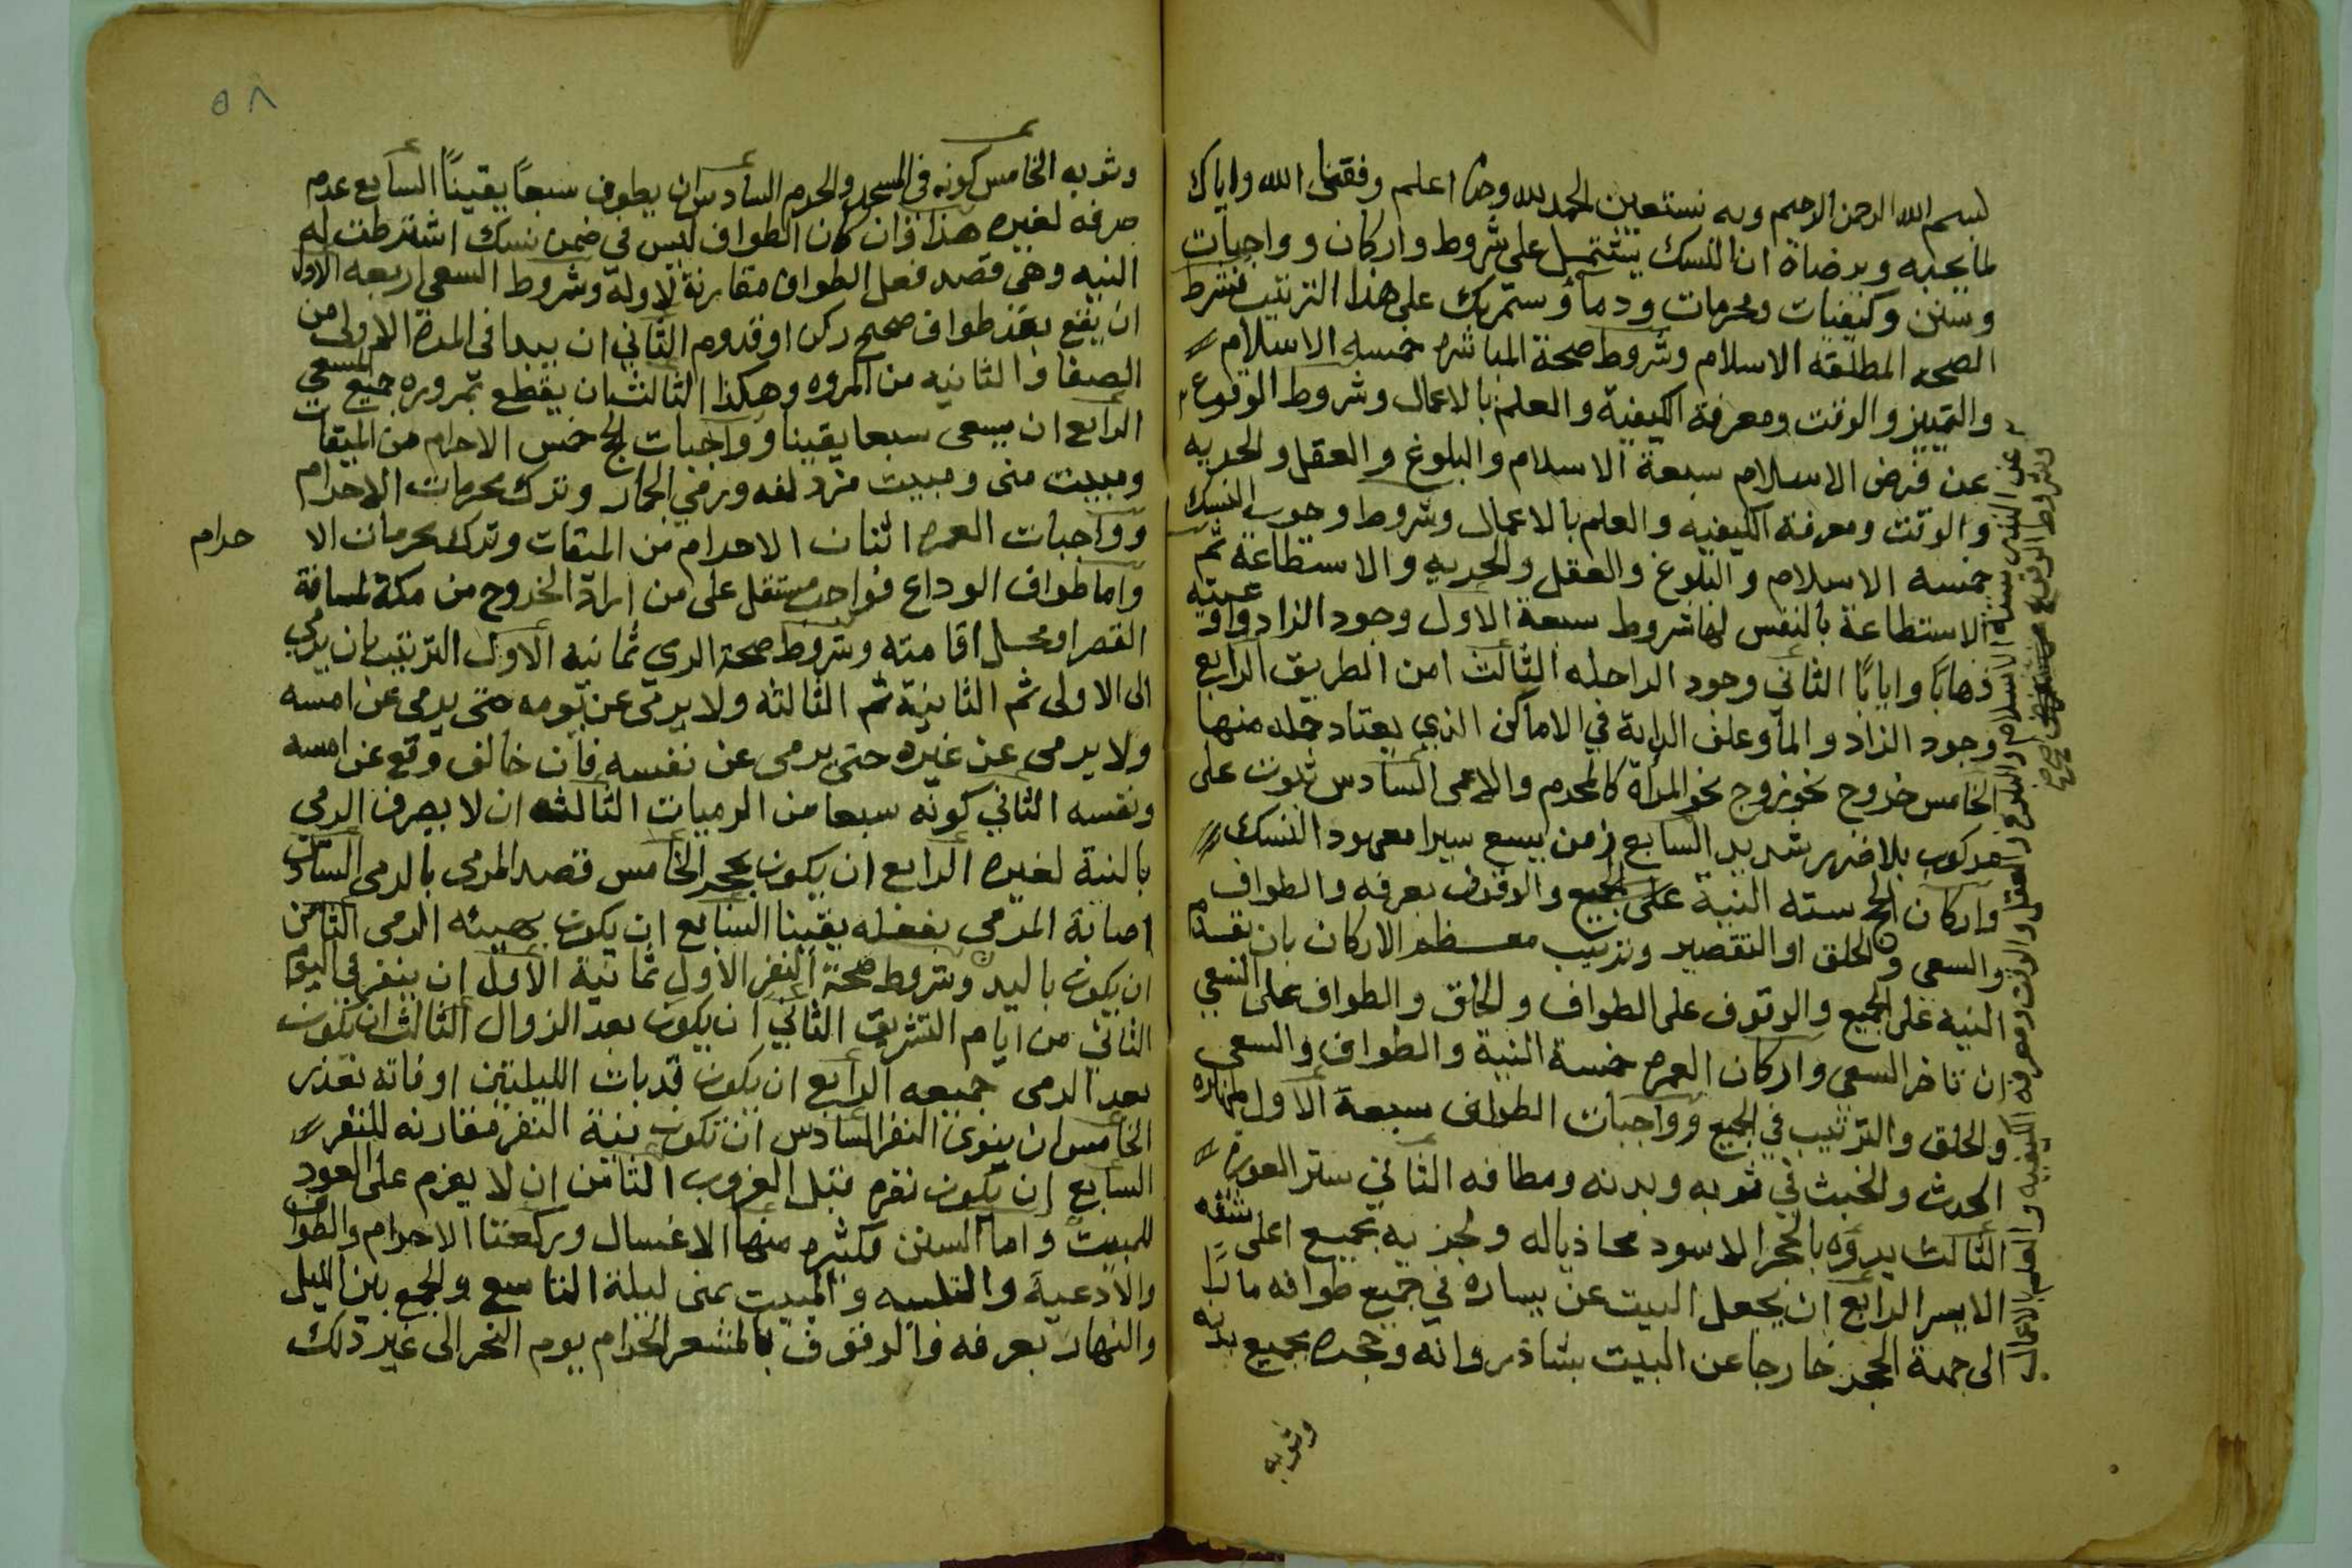 بسم الله الرحمن الرحيم وبه نستعين الحمد لله وحده اعلم وفقنا الله واياك
لما يحبه ويرضاه ان النسك يشتمل على شروط واركان وواجبات
وسنن وكيفيات ومحرمات ودمأ وستمر بك على هذا الترتيب فشرط
الصحه المطلقه الاسلام وشروط صحة المباشره خمسه الاسلام
والتمييز والوقت ومعرفة الكيفية والعلم بالاعمال وشروط الوقوع
عن فرض الاسلام سبعة الاسلام والبلوغ والعقل والحريه
والوقت ومعرفة الكيفيه والعلم بالاعمال وشروط وجوب النسك
خمسه الاسلام والبلوغ والعقل والحريه والاستطاعة ثم
الاستطاعة بالنفس لها شروط سبعة الاول وجود الزاد واوعيته
ذهابًا وايابًا الثاني وجود الراحله الثالث امن الطريق الرابع
وجود الزاد والمأ وعلف الدابة في الاماكن الذي يعتاد حمله منها
الخامس خروج نحو زوج نحو المرأة كالمحرم والاعمى السادس ثبوت على
مركوب بلا ضرر شديد السابع زمن يسع سيرا معهود النسك
واركان الحج سته النية على الجميع والوقوف بعرفه والطواف
والسعي والحلق او التقصير وترتيب معظم الاركان بان تقدم
النيه على الجميع والوقوف على الطواف والحلق والطواف على السعي
ان تاخر السعي واركان العمره خمسة النية والطواف والسعي
والحلق والترتيب في الجميع وواجبات الطواف سبعة الاول طهارة
الحدث والخبث في ثوبه وبدنه ومطافه الثاني ستر العورة
الثالث بدؤه بالحجر الاسود محاذيا له ولجزيه بجميع اعلى شقه
الايسر الرابع ان يجعل البيت عن يساره في جميع طوافه مارًا
الى جهة الحجر خارجا عن البيت بشاذروانه وحجره بجميع بدنه
وثوبه
وشروط الوقوع
عن النذر ستة الاسلام والبلوغ والعقل والوقت ومعرفة الكيفيه والعلم بالاعمال
٥٨
وثوبه الخامس كونه في المسجد والحرم السادس ان يطوف سبعاً يقيناً السابع عدم
صرفه لغيره هذا وان كان الطواف ليس في ضمن نسك اشترطت له
النيه وهي قصد فعل الطواف مقارنة لاوله وشروط السعي اربعه الاول
ان يقع بعد طواف صحيح ركن او قدوم الثاني ان يبدا في المرة الاولى من
الصفا والثانيه من المروه وهكذا الثالث ان يقطع بمروره جميع المسعى
الرابع ان يسعى سبعا يقينا وواجبات الحج خمس الاحرام من الميقات
ومبيت منى ومبيت مزدلفه ورمي الجمار وترك محرمات الاحرام
وواجبات العمره اثنان الاحرام من الميقات وترك محرمات الا
حرام
واما طواف الوداع فواجب مستقل على من اراد الخروج من مكة لمسافة
القصر او محل اقامته وشروط صحة الرمي ثمانيه الاول الترتيب بان يرمي
الى الاولى ثم الثانية ثم الثالثه ولا يرمي عن يومه حتى يرمي عن امسه
ولا يرمي عن غيره حتى يرمى عن نفسه فان خالف وقع عن امسه
ونفسه الثاني كونه سبعا من الرميات الثالثه ان لا يصرف الرمي
بالنية لغيره الرابع ان يكون بحجر الخامس قصد المرمى بالرمى السادس
اصابة المرمى بفعله يقينا السابع ان يكون بهيئه الرمى الثامن
ان يكون باليد وشروط صحة النفر الاول ثمانية الاول ان ينفر في اليوم
الثاني من ايام التشريق الثاني ان يكون بعد الزوال الثالث ان يكون
بعد الرمى جميعه الرابع ان يكون قد بات الليلتين او فاته بعذر
الخامس ان ينوى النفر السادس ان تكون نية النفر مقارنه للنفر
السابع ان يكون نفره قبل الغروب الثامن ان لا يعزم على العود
للمبيت واما السنن فكثيره منها الاغسال وركعتا الاحرام والطواف
والادعية والتلبيه والمبيت بمنى ليلة التاسع والجمع بين الليل
والنهار بعرفه والوقوف بالمشعر الحرام يوم النحر الى غير ذلك